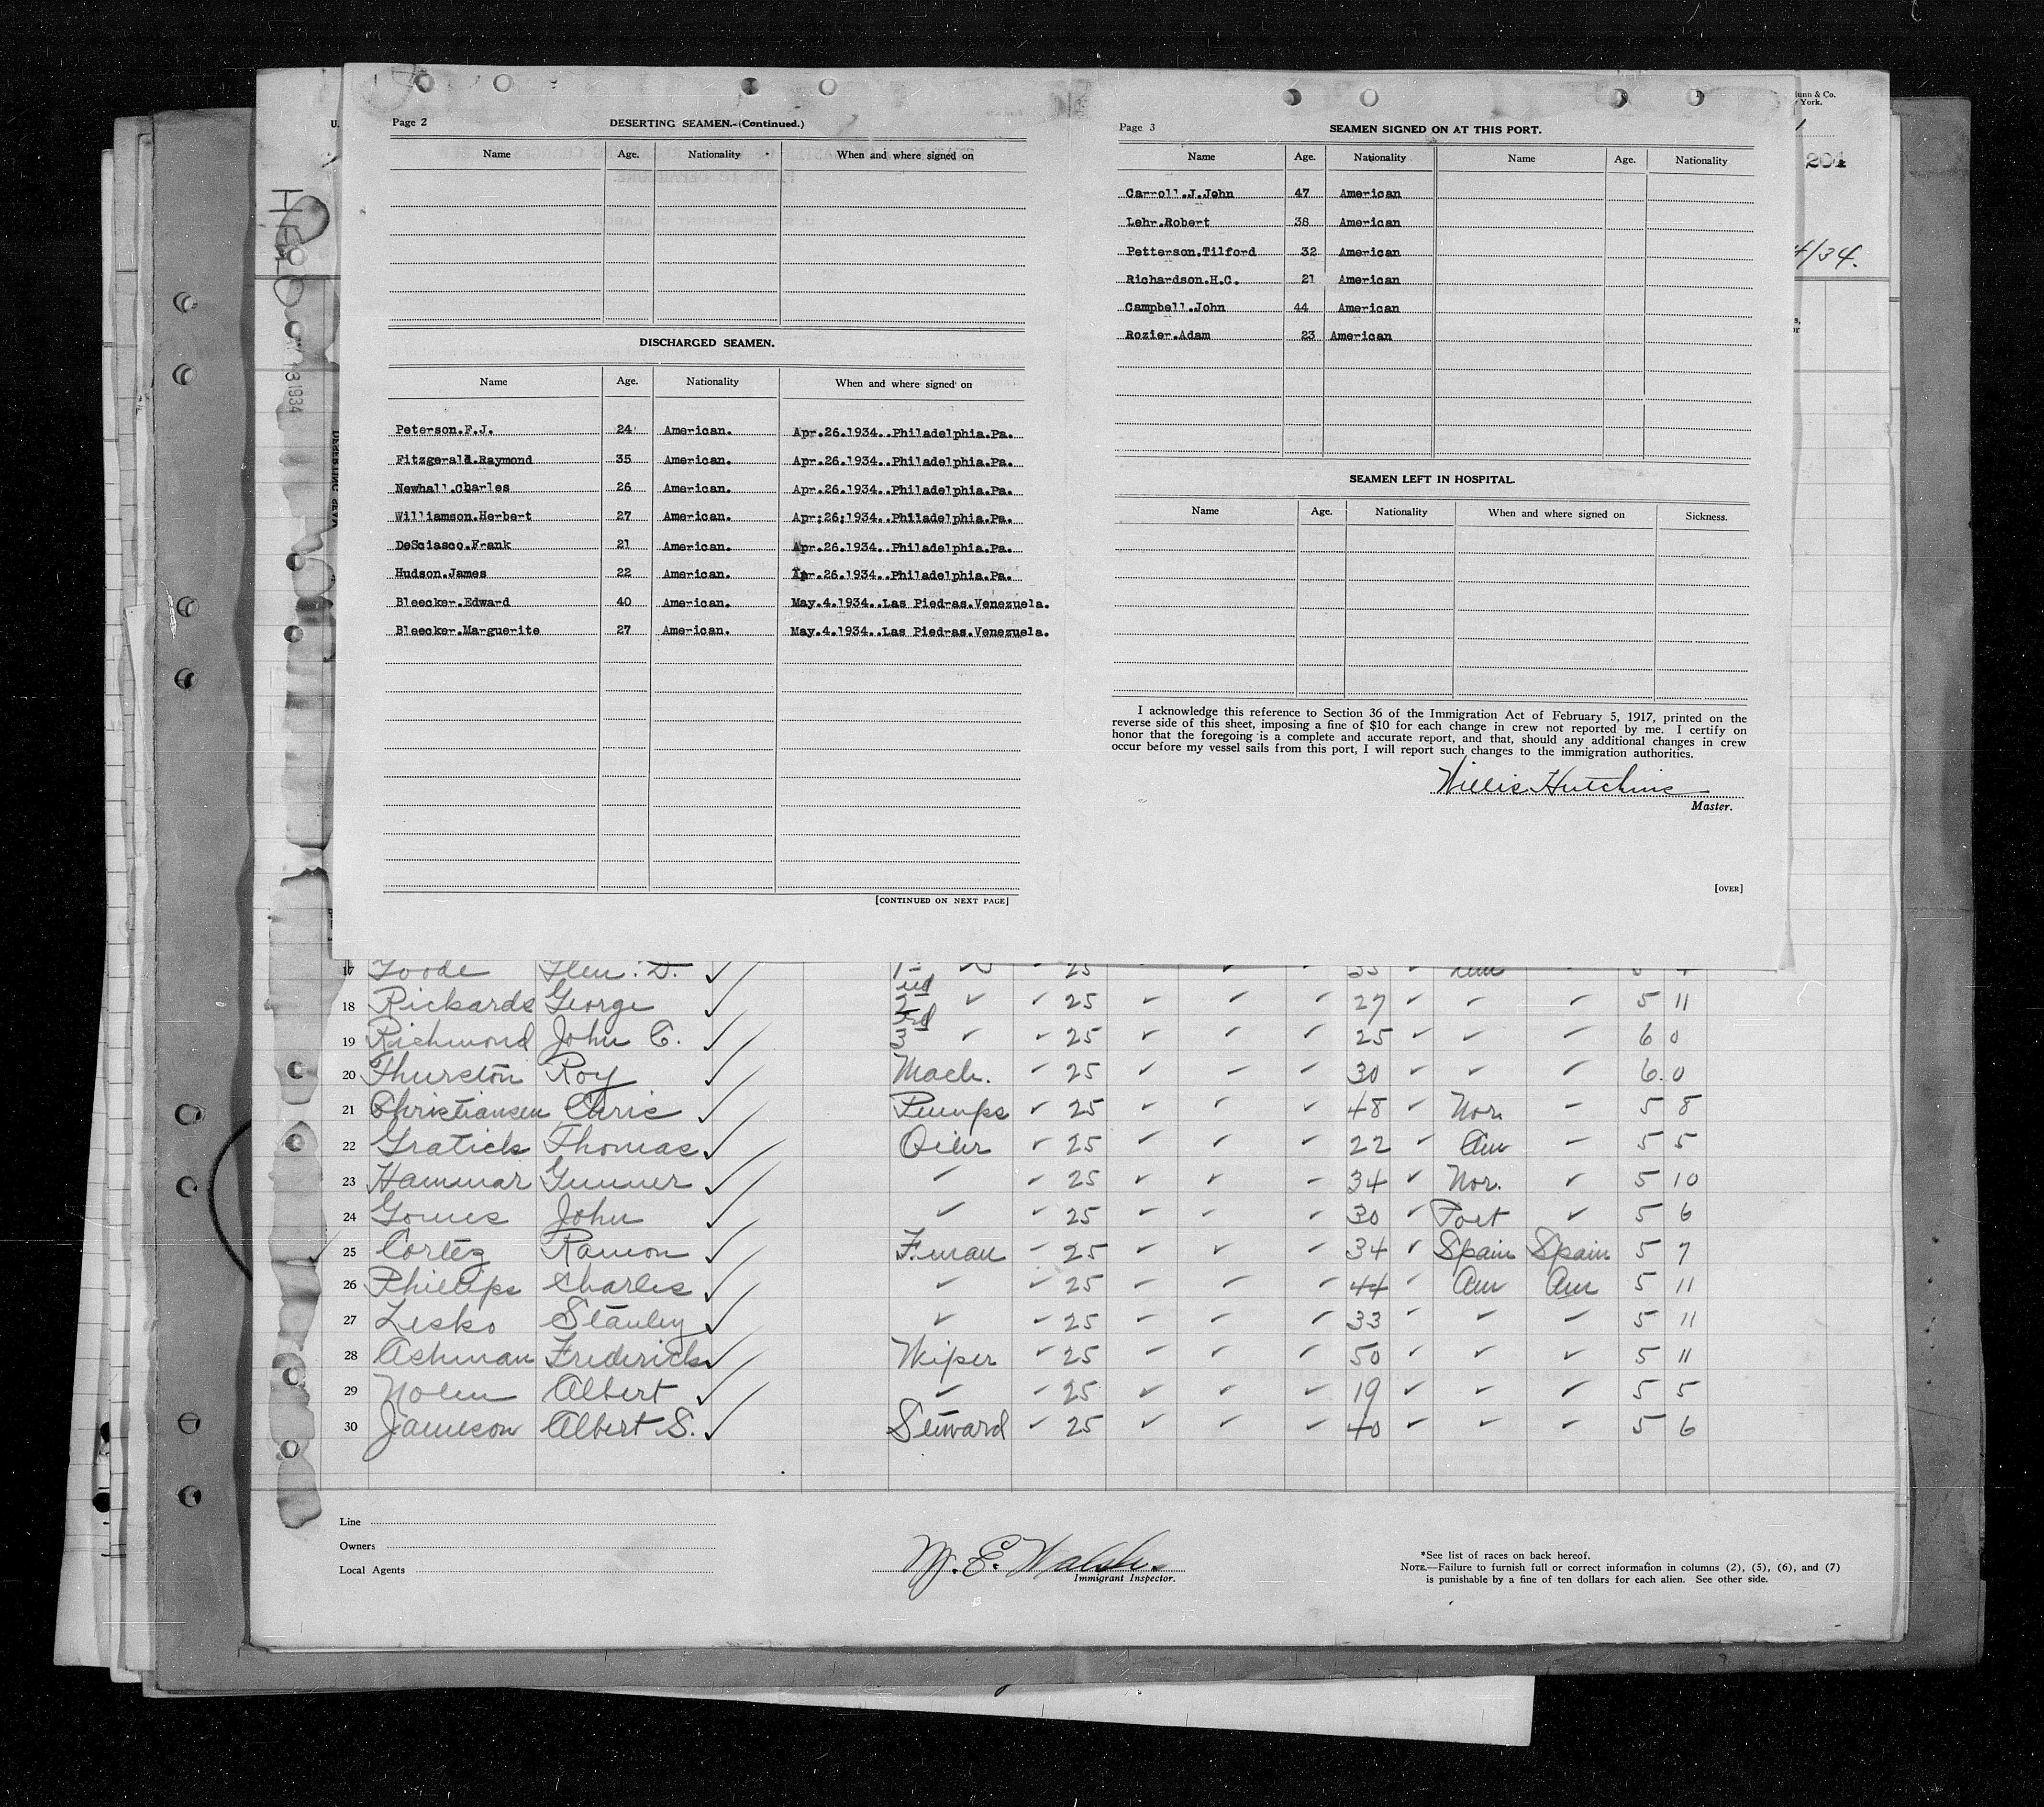 Page 2 DESERTING SEAMEN.-(Continued.)
Name Age. Nationality When and where signed on
DISCHARGED SEAMEN.
Name Age. Nationality When and where signed on
Peterson.F.J. 24 American. Apr.26.1934..Philadelphia.Pa.
Fitzgerald.Raymond 35 American. Apr.26.1934..Philadelphia.Pa.
Newhall.Charles 26 American. Apr.26.1934..Philadelphia.Pa.
Williamson.Herbert 27 American. Apr;26;1934..Philadelphia.Pa.
DeSciasco.Frank 21 American. Apr.26.1934..Philadelphia.Pa.
Hudson.James 22 American. Apr.26.1934..Philadelphia.Pa.
Bleecker.Edward 40 American. May.4.1934..Las Piedras.Venezuela.
Bleecker.Marguerite 27 American. May.4.1934..Las Piedras.Venezuela.
[CONTINUED ON NEXT PAGE]
Page 3 SEAMEN SIGNED ON AT THIS PORT.
Name Age. Nationality Name Age. Nationality
Carroll.J.John 47 American
Lehr.Robert 38 American
Petterson.Tilford 32 American
Richardson.H.C. 21 American
Campbell.John 44 American
Rozier.Adam 23 American
SEAMEN LEFT IN HOSPITAL.
Name Age. Nationality When and where signed on Sickness.
I acknowledge this reference to Section 36 of the Immigration Act of February 5, 1917, printed on the
reverse side of this sheet, imposing a fine of $10 for each change in crew not reported by me. I certify on
honor that the foregoing is a complete and accurate report, and that, should any additional changes in crew
occur before my vessel sails from this port, I will report such changes to the immigration authorities.
Willis Hutchins
Master.
[OVER]
& Co.
York.
204
4/34.
HELD
3 1934
17 Goode Glen. D. ✓ 1st ✓ ✓ 25 ✓ ✓ 35 ✓ Am
18 Rickards George ✓ 2nd ✓ ✓ 25 ✓ ✓ ✓ 27 ✓ ✓ ✓ 5 11
19 Richmond John C. ✓ 3rd ✓ ✓ 25 ✓ ✓ ✓ 25 ✓ ✓ ✓ 6 0
20 Thurston Roy ✓ Mach. ✓ 25 ✓ ✓ ✓ 30 ✓ ✓ ✓ 6.0
21 Christiansen Chris ✓ Pumps ✓ 25 ✓ ✓ ✓ 48 ✓ Nor. ✓ 5 8
22 Gratick Thomas ✓ Oiler ✓ 25 ✓ ✓ ✓ 22 ✓ Am ✓ 5 5
23 Hammar Gunner ✓ ✓ ✓ 25 ✓ ✓ ✓ 34 ✓ Nor. ✓ 5 10
24 Gomes John ✓ ✓ ✓ 25 ✓ ✓ ✓ 30 ✓ Port ✓ 5 6
25 Cortez Ramon ✓ F.man ✓ 25 ✓ ✓ ✓ 34 ✓ Spain Spain 5 7
26 Phillips Charles ✓ ✓ ✓ 25 ✓ ✓ ✓ 44 ✓ Am Am 5 11
27 Lesko Stanley ✓ ✓ ✓ 25 ✓ ✓ ✓ 33 ✓ ✓ ✓ 5 11
28 Ashman Frederick ✓ Wiper ✓ 25 ✓ ✓ ✓ 50 ✓ ✓ ✓ 5 11
29 Nolen Albert ✓ ✓ ✓ 25 ✓ ✓ ✓ 19 ✓ ✓ ✓ 5 5
30 Jameson Albert S. ✓ Steward ✓ 25 ✓ ✓ ✓ 40 ✓ ✓ ✓ 5 6
Line
Owners
Local Agents
W. E. Walsh.
Immigrant Inspector.
*See list of races on back hereof.
NOTE.—Failure to furnish full or correct information in columns (2), (5), (6), and (7)
is punishable by a fine of ten dollars for each alien. See other side.